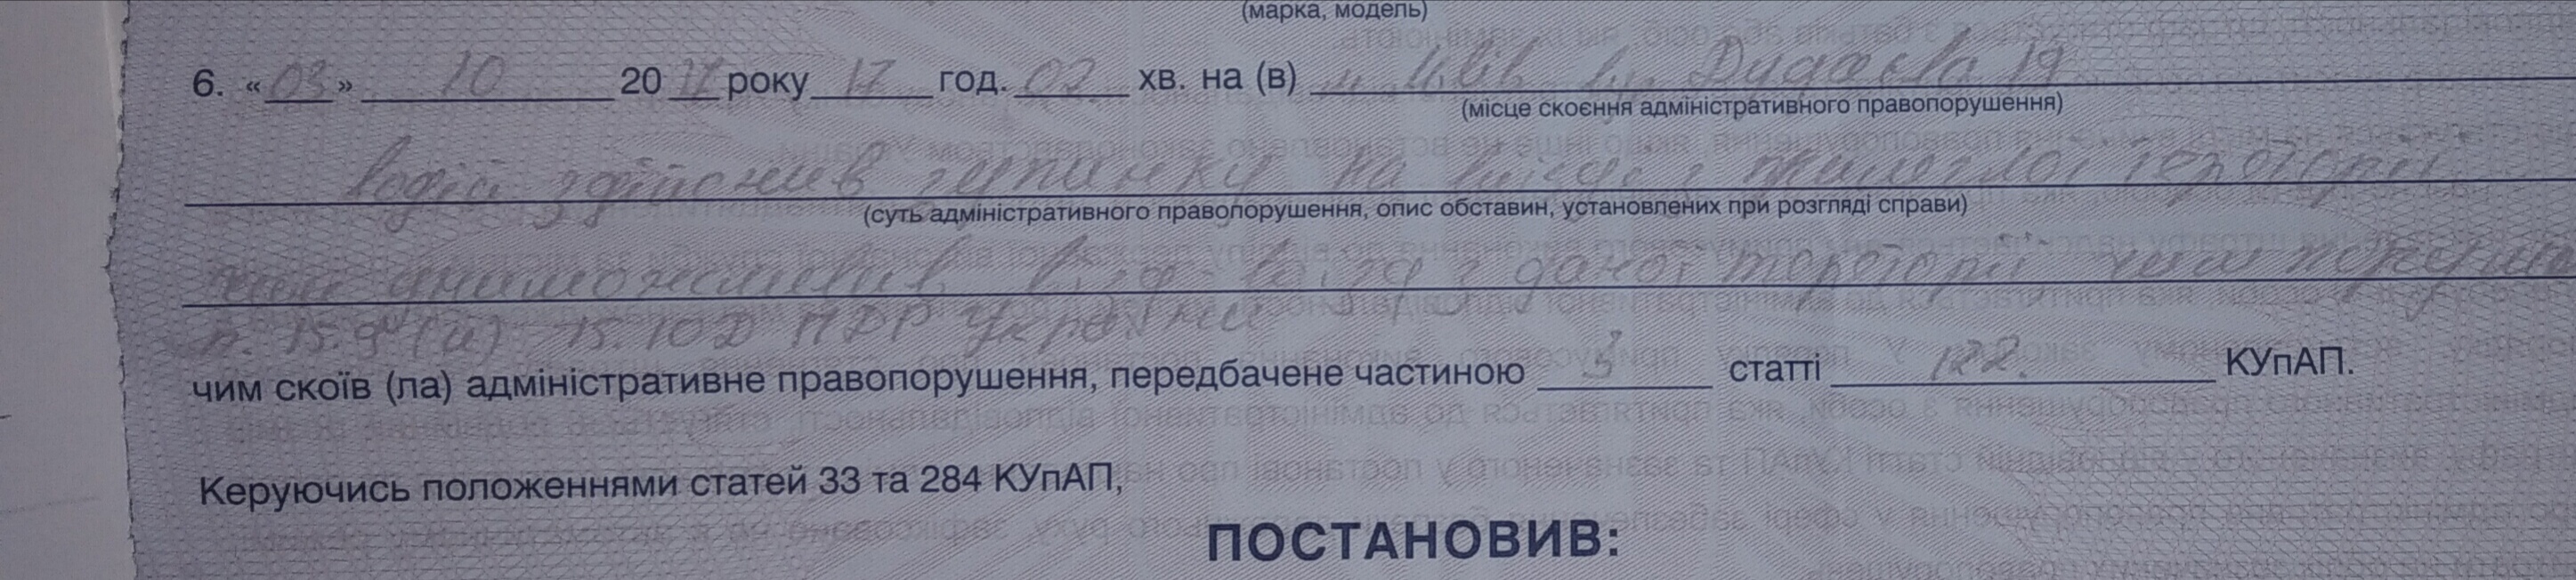 (марка, модель)
6. «03» 10 20 17 року 17 год. 02 хв. на (в) м. Львів вул. Дудаєва 19
(місце скоєння адміністративного правопорушення)
Водій здійснив зупинку на виїзді з прилеглої території
(суть адміністративного правопорушення, опис обставин, установлених при розгляді справи)
чим унеможливив виїзд з даної території чим порушив
п. 15.9 (и) 15.10 Д ПДР України
чим скоїв (ла) адміністративне правопорушення, передбачене частиною 3 статті 122. КУпАП.
Керуючись положеннями статей 33 та 284 КУпАП,
ПОСТАНОВИВ: